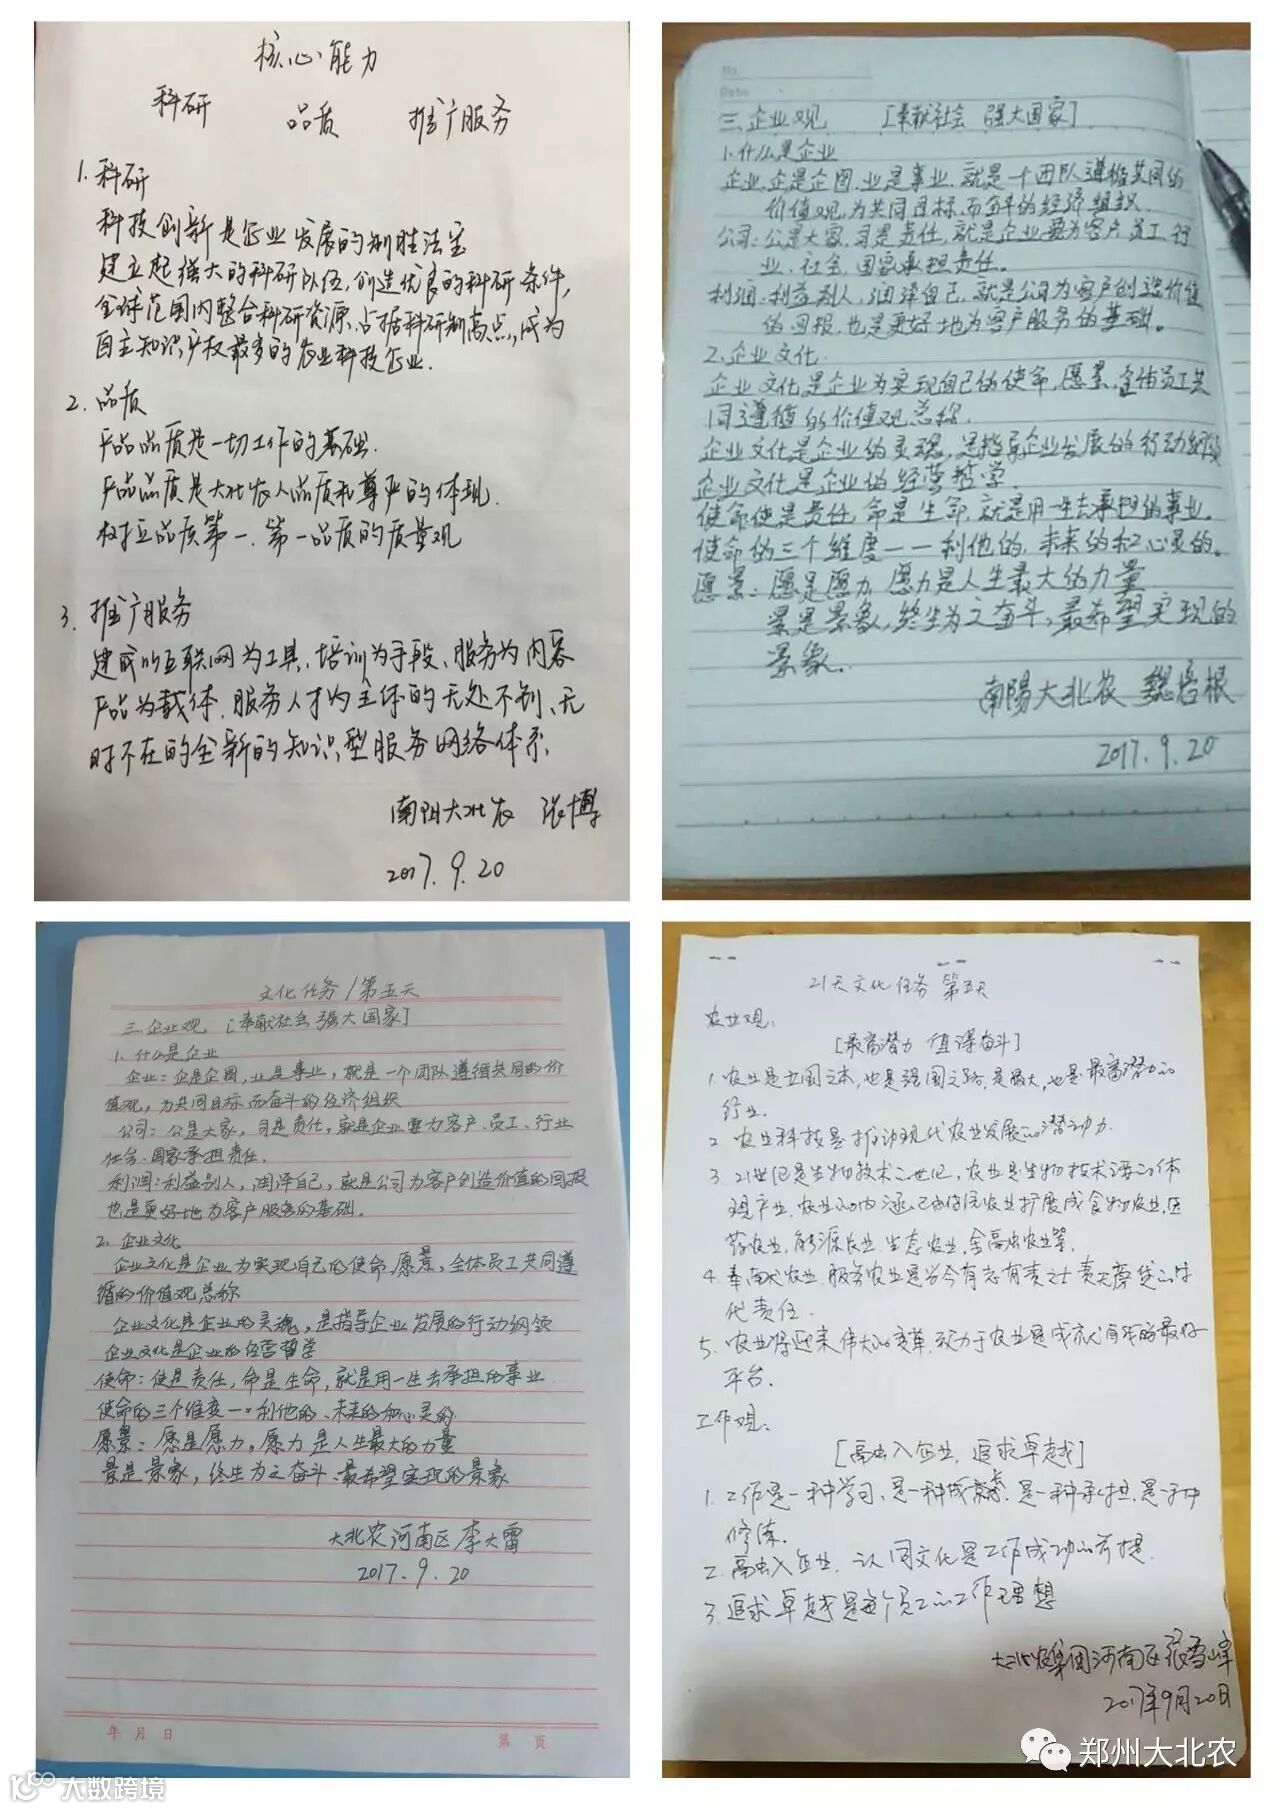 核心能力
科研 品质 推广服务
1. 科研
科技创新是企业发展的制胜法宝
建立起强大的科研队伍,创造优良的科研条件,
全球范围内整合科研资源、占据科研制高点,成为
自主知识产权最多的农业科技企业.
2. 品质
产品品质是一切工作的基础.
产品品质是大北农人品质和尊严的体现.
树立品质第一、第一品质的质量观
3. 推广服务
建成以互联网为工具、培训为手段、服务为内容
产品为载体、服务人才为主体的无处不到、无
时不在的全新的知识型服务网络体系.
南阳大北农 张博
2017.9.20
No.
Date
三.企业观 [奉献社会 强大国家]
1.什么是企业
企业:企是企图,业是事业,就是一个团队遵循共同的
价值观,为共同目标而奋斗的经济组织.
公司:公是大家,司是责任,就是企业要为客户、员工、行
业、社会、国家承担责任。
利润:利益别人,润泽自己,就是公司为客户创造价值
的回报,也是更好地为客户服务的基础。
2.企业文化.
企业文化是企业为实现自己的使命,愿景,全体员工共
同遵循的价值观总称.
企业文化是企业的灵魂,是指导企业发展的行动纲领
企业文化是企业的经营哲学.
使命:使是责任,命是生命,就是用一生去承担的事业.
使命的三个维度——利他的,未来的和心灵的.
愿景:愿是愿力,愿力是人生最大的力量
景是景象,终生为之奋斗,最希望实现的
景象.
南陽大北农 魏培根
2017.9.20
文化任务/第五天
三.企业观 [奉献社会 强大国家]
1. 什么是企业
企业:企是企图,业是事业,就是一个团队遵循共同的价
值观,为共同目标而奋斗的经济组织
公司:公是大家,司是责任,就是企业要为客户、员工、行业
社会、国家承担责任.
利润:利益别人,润泽自己,就是公司为客户创造价值的回报
也是更好地为客户服务的基础.
2. 企业文化
企业文化是企业为实现自己的使命、愿景,全体员工共同遵
循的价值观总称
企业文化是企业的灵魂,是指导企业发展的行动纲领
企业文化是企业的经营哲学
使命:使是责任,命是生命,就是用一生去承担的事业
使命的三个维度——利他的、未来的和心灵的
愿景:愿是愿力,愿力是人生最大的力量
景是景象,终生为之奋斗、最希望实现的景象
大北农河南区 李大雷
2017.9.20
年 月 日 第 页
21天文化任务 第五天
农业观:
[最高潜力 值得奋斗]
1. 农业是立国之本,也是强国之路,是最大,也是最高潜力的
行业.
2 农业科技是推动现代农业发展的潜动力.
3. 21世纪是生物技术的世纪,农业是生物技术主要的体
现产业,农业的内涵已由传统农业扩展成食物农业,医
药农业,能源农业,生态农业,金融农业等.
4. 奉献农业,服务农业是当今有志有责之士责无旁贷的时
代责任.
5. 农业将迎来伟大的变革,致力于农业是成就自我的最好
平台.
工作观:
[融入企业,追求卓越]
1. 工作是一种学习,是一种成长,是一种承担,是一种
修炼.
2. 融入企业,认同文化是工作成功的前提.
3. 追求卓越是每个员工的工作理想
大北农集团河南区张雪峰
2017年9月20日
郑州大北农
大数跨境